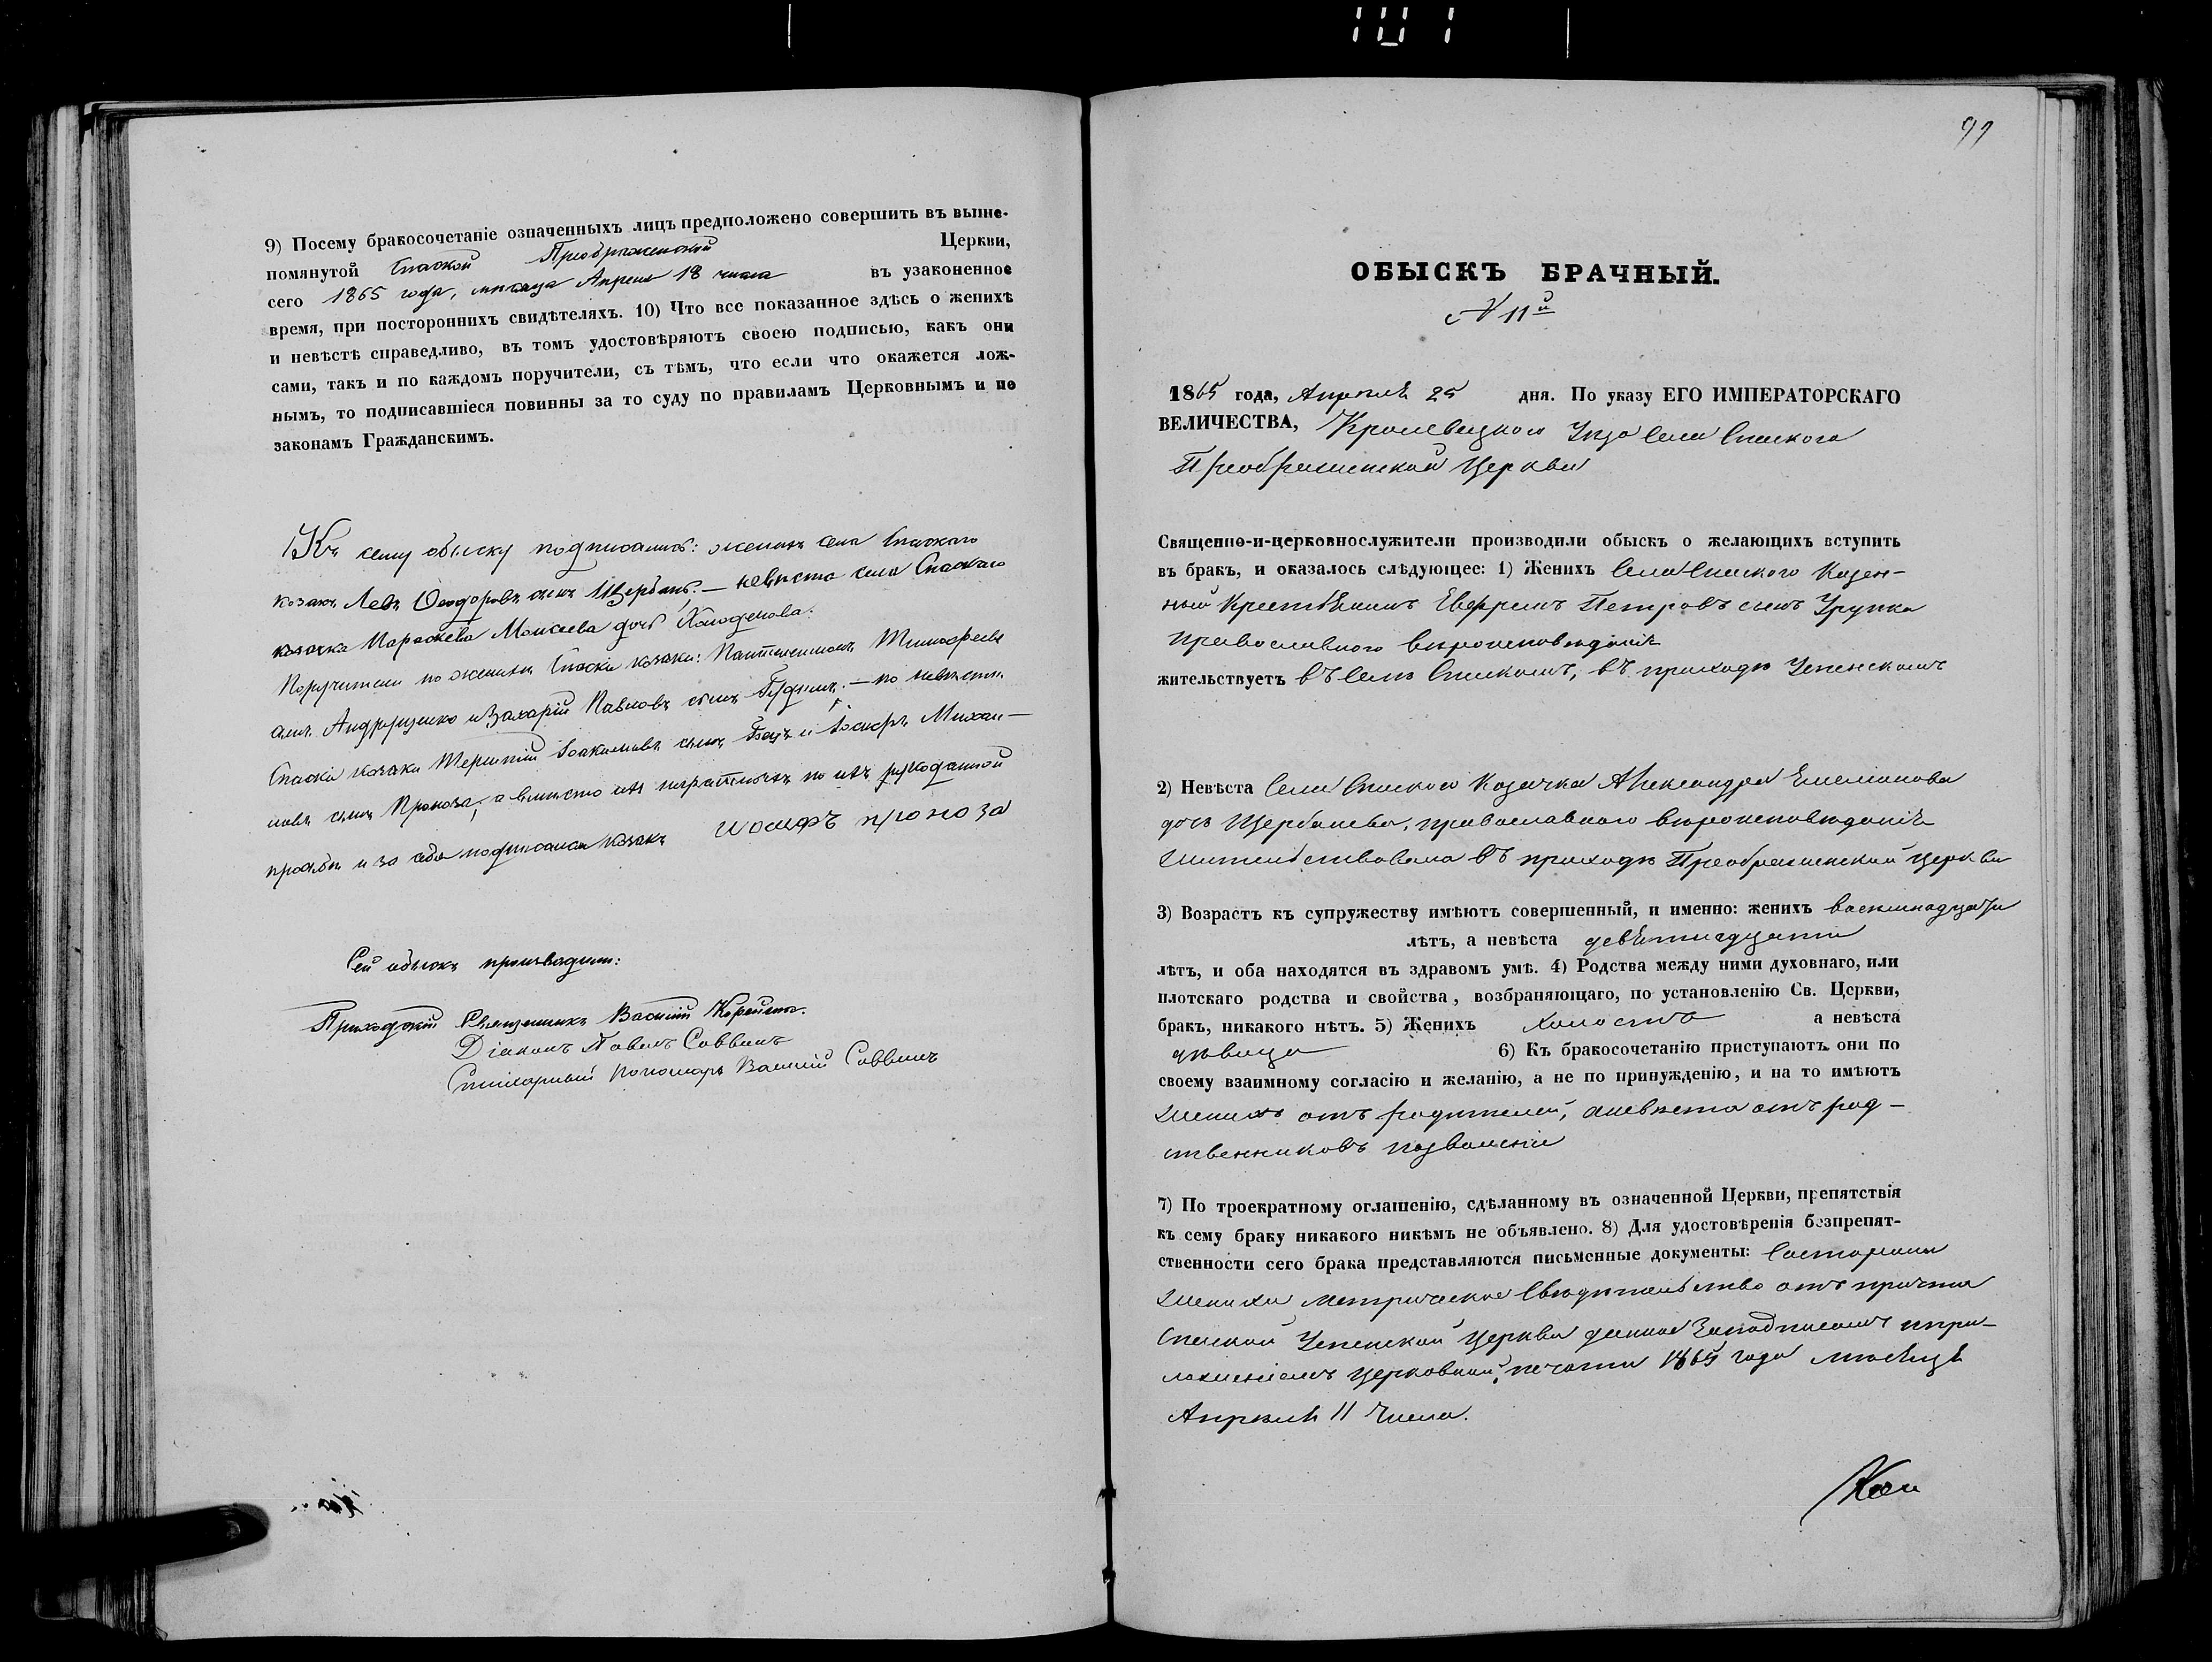 9) Посему бракосочетаніе означенныхъ лицъ предположено совершить въ выше-
помянутой Спаской Преображенской Церкви,
сего 1865 года, мѣсяца Апреля 18 числа въ узаконенное
время, при постороннихъ свидѣтеляхъ. 10) Что все показанное здѣсь о женихѣ
и невѣстѣ справедливо, въ томъ удостовѣряютъ своею подписью, какъ они
сами, такъ и по каждомъ поручители, съ тѣмъ, что если что окажется лож-
нымъ, то подписавшіеся повинны за то суду по правиламъ Церковнымъ и по
законамъ Гражданскимъ.
Къ сему обыску подписались: женихъ села Спаскаго
козакъ Левъ Ѳеодоровъ сынъ Щербакъ. — невѣста села Спаскаго
козачка Параскева Моисеева дочь
Поручители по женихѣ Спаскіе козаки: Пантелеимонъ Тимофеевъ
сынъ Андрущенко и Захарій Павловъ сынъ — по невѣстѣ
Спаскіе козаки Терентій Іоакимовъ сынъ и Іосифъ Михаи-
ловъ сынъ Проноза, а вмѣсто ихъ неграмотныхъ по ихъ рукоданной
прозьбѣ и за себя подписался козакъ Иосифъ проноза
Сей обыскъ производили:
Приходскій Священникъ Василій
Діаконъ Павелъ Саввинъ
Стихарный Пономарь Василій Саввинъ
99
ОБЫСКЪ БРАЧНЫЙ.
№ 11й
1865 года, Апрѣля 25 дня. По указу ЕГО ИМПЕРАТОРСКАГО
ВЕЛИЧЕСТВА, Кролевецкого Уѣзда Села Спаского
Преображенской Церкви
Священно-и-церковнослужители производили обыскъ о желающихъ вступить
въ бракъ, и оказалось слѣдующее: 1) Женихъ Села Спаского Казен-
ный Крестьянинъ Петровъ сынъ
Православного вѣроисповѣданія
жительствуетъ въ Селѣ Спаскомъ, въ приходѣ Успенскомъ
2) Невѣста Села Спаского Козачка Александра Емелианова
дочь Щербакова, православного вѣроисповѣданія
жительствовала въ приходѣ Преображенской Церкви
3) Возрастъ къ супружеству имѣютъ совершенный, и именно: женихъ восемнадцати
лѣтъ, а невѣста девятнадцати
лѣтъ, и оба находятся въ здравомъ умѣ. 4) Родства между ними духовнаго, или
плотскаго родства и свойства, возбраняющаго, по установленію Св. Церкви,
бракъ, никакого нѣтъ. 5) Женихъ холостъ а невѣста
дѣвица 6) Къ бракосочетанію приступаютъ они по
своему взаимному согласію и желанію, а не по принужденію, и на то имѣютъ
женихъ отъ родителей, а невѣста отъ род-
ственниковъ позволеніе
7) По троекратному оглашенію, сдѣланному въ означенной Церкви, препятствія
къ сему браку никакого никѣмъ не объявлено. 8) Для удостовѣренія безпрепят-
ственности сего брака представляются письменные документы: Состороны
жениха метрическое Свидѣтельство отъ причта
Спаской Успенской Церкви данное Заподписомъ и при-
ложеніемъ церковной печати 1865 года мѣсяца
Апреля 11 числа.